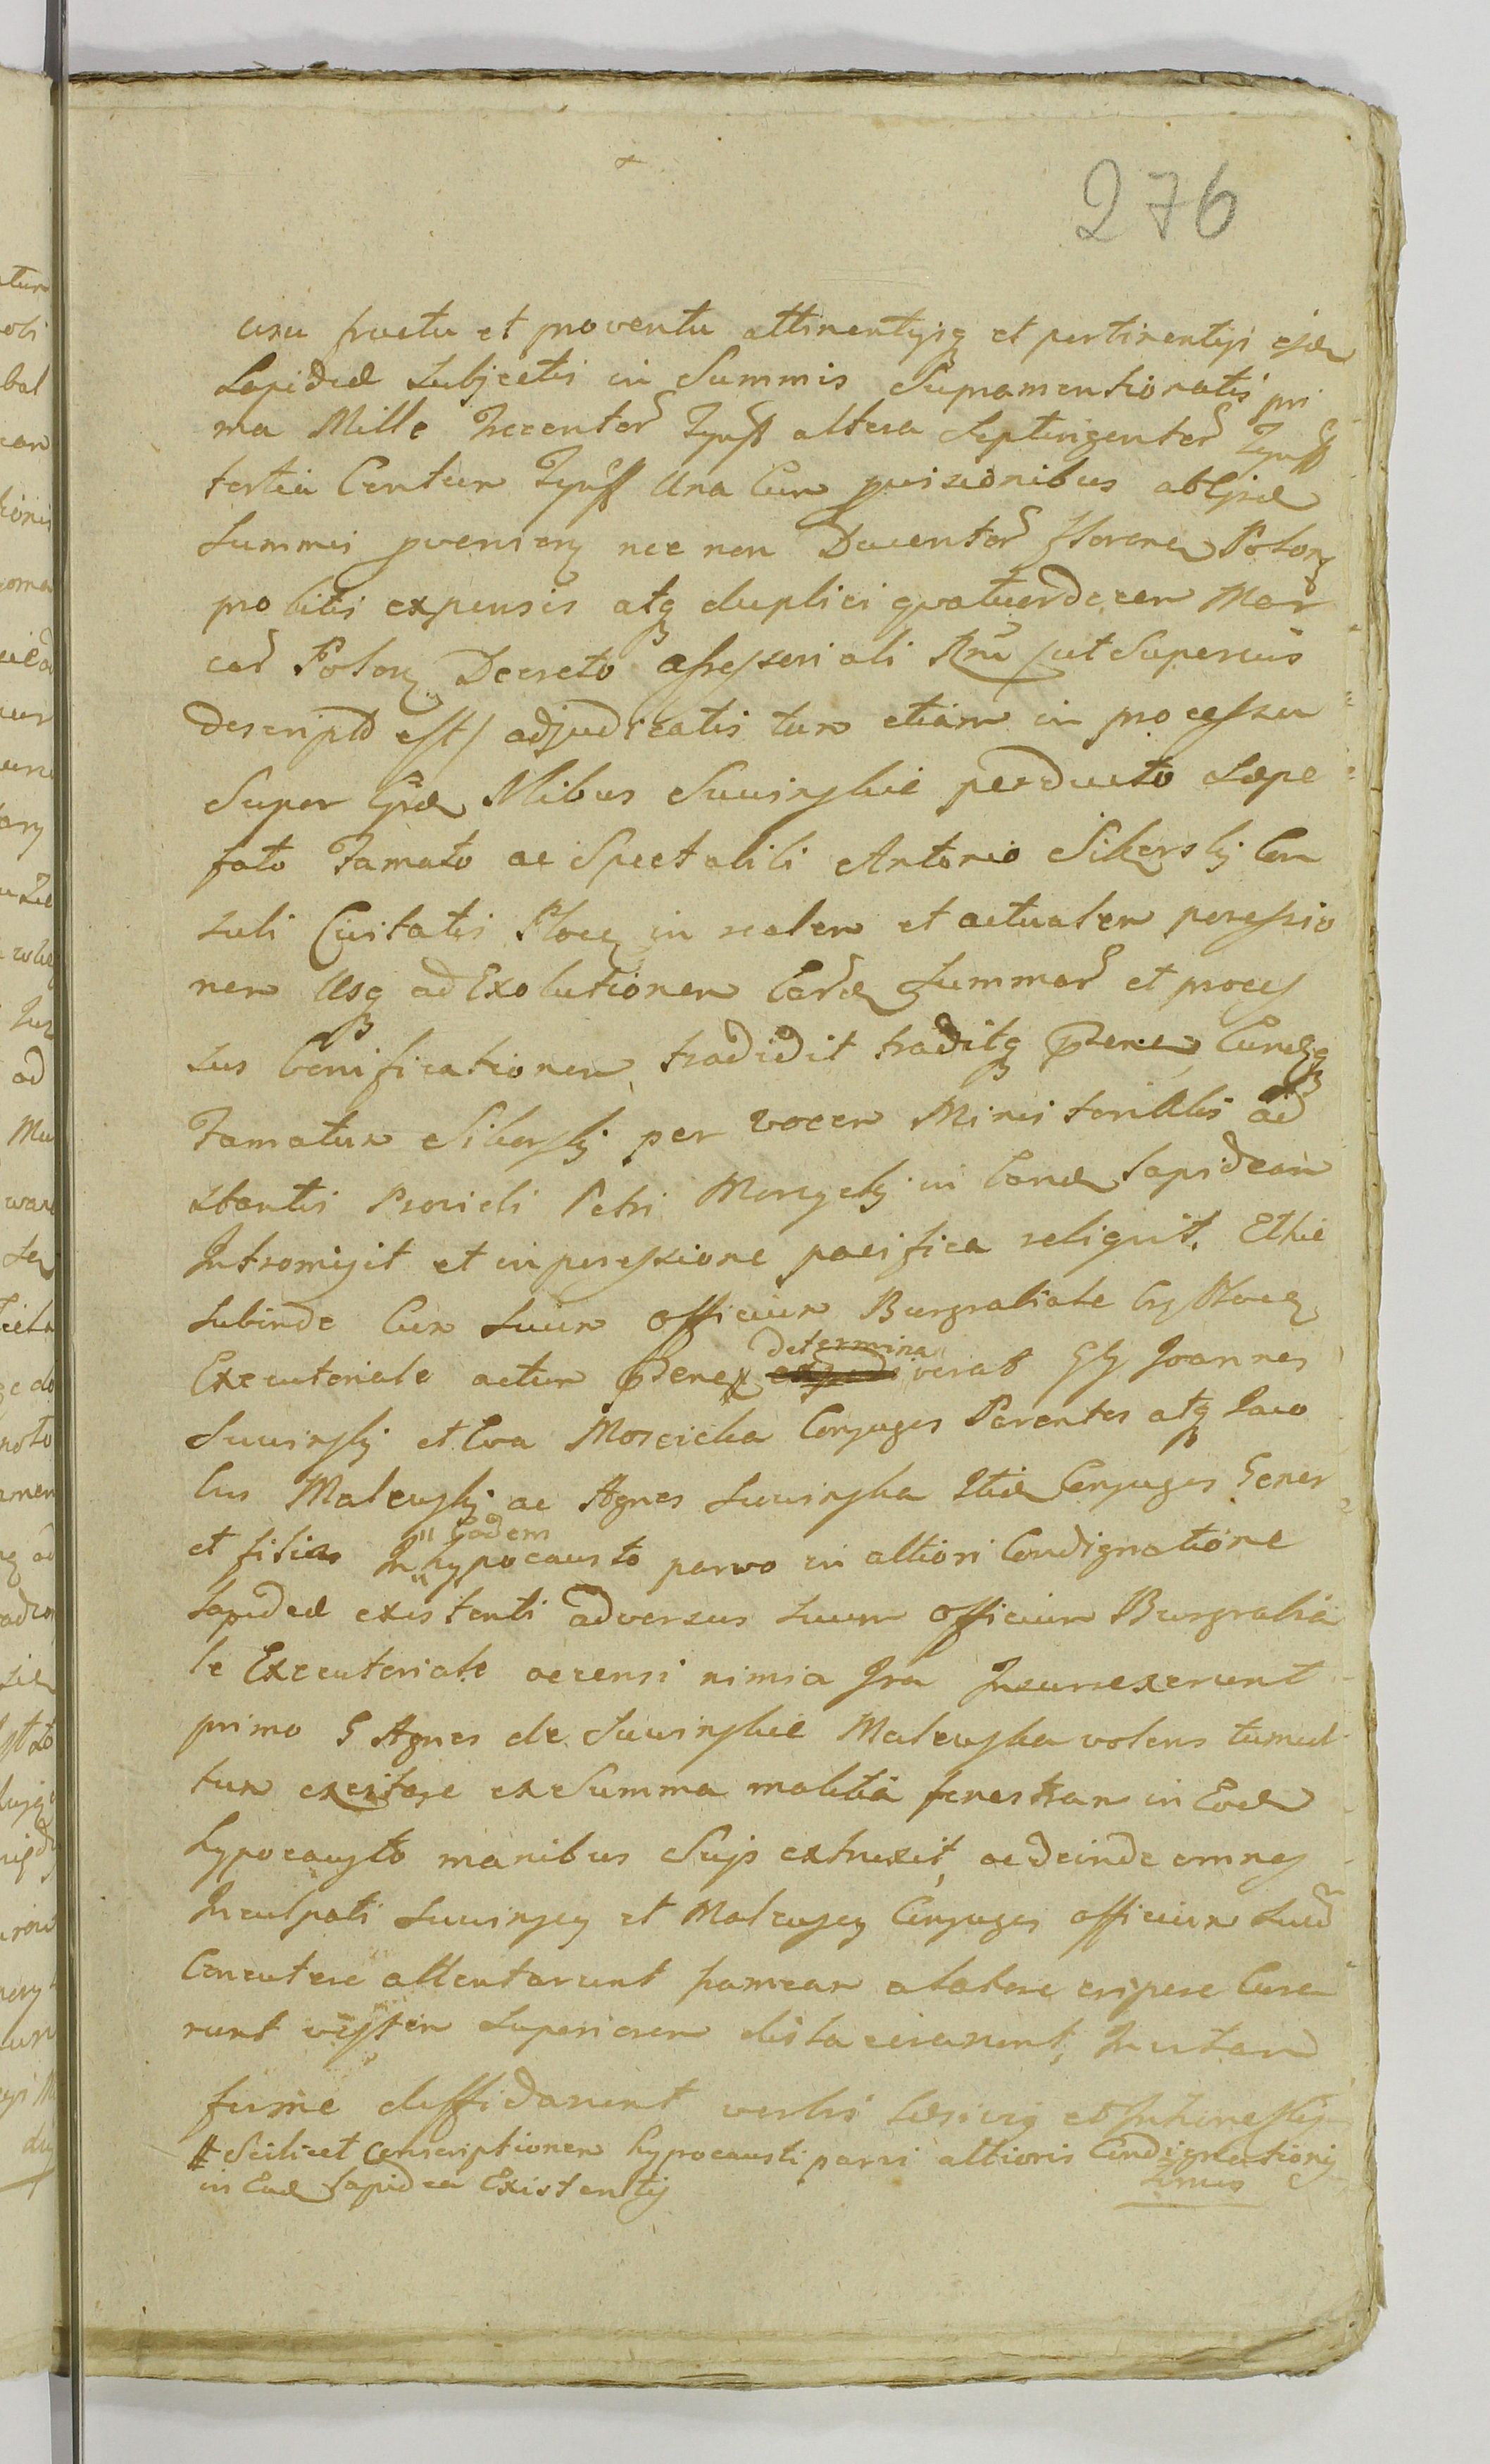 276
usu fructu et proventu attinentijsq et pertinentijs ejsd
Lapidea Subjectis in Summis Supramentionatis pri
ma Mille Trecentor Tynff altera Septingentor Tynff
tertia Centum Tynff Una Cum provisionibus ab
Summis provenien nec non Ducentor florenor Polon
pro litis expensis atq duplici qvatuordecem Mar
car Polon Decreto assessoriali Rni /ut Superius
descripto est/ adjudicatis tum etiam in processu
Super Gsd Nlibus Suwinskie perducto Saepe
fato Famato ac Spectabili Antonio Sikorskj Con
suli Civitatis Plocen in realem et actualem possessio
nem Usq ad Exolutionem Eard Summar et proces
sus bonificationem, tradidit traditq praesen Eundq
Famatum Sikorskj per vocem Ministerialis ad
stantis Providi Petri in Eand Lapideam
Intromisit et in possessione pacifica reliqvit. Ethic
Subinde Cum Suum Officium Burgrabiale Plocen
Executoriale actum praesen determina verat GG Joannes
Suwinskj et Eva Moscicka Conjuges Parentes atq Jaco
bus Malewskj ac Agnes Suwinska Conjuges Gener
et filia In "Eodem hypocausto parvo in altiori Condignatione
Lapidea existenti adversus Suum Officium Burgrabia
le Executoriale accensi nimia Ira Insurrexerunt
primo G Agnes de Suwinskie Malewska volens tumul
tum excitare ex Summa malitia fenestram in Eod
hypocausto manibus Suis extruxit, ac deinde omnes
Inculpati Suwinscy et Malewscy Conjuges officium Suum
Concutere attentarunt frameam a latere eripere
runt vestem Superiorem dilacerarunt,
fusive diffidarunt verbis laesivis et Inhonestis
# Scilicet Conscriptionem hypocausti parvi altioris Condignationis
in Ead Lapidea Existentis